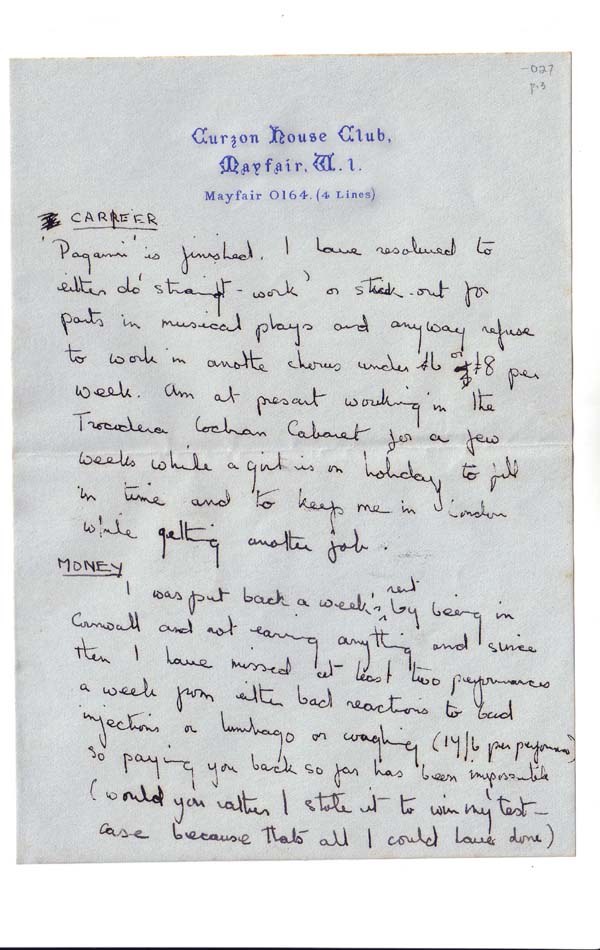 -027
p.3
Curzon House Club,
Mayfair, W.1.
Mayfair 0164. (4 Lines)
CAREER
'Paganini' is finished. I have resolved to
either do 'straight - work' or stick - out for
parts in musical plays and anyway refuse
to work in another chorus under £6 or £8 per
week. Am at present working in the
Trocadera Cochran Cabaret for a few
weeks while a girl is on holiday to fill
in time and to keep me in London
while getting another job.
MONEY
I was put back a week's rent by being in
Cornwall and not earning anything and since
then I have missed at least two performances
a week from either bad reactions to bad
injections or lumbago or (17/6 per performance)
so paying you back so far has been impossible
(would you rather I stole it to win my test -
case because thats all I could have done)